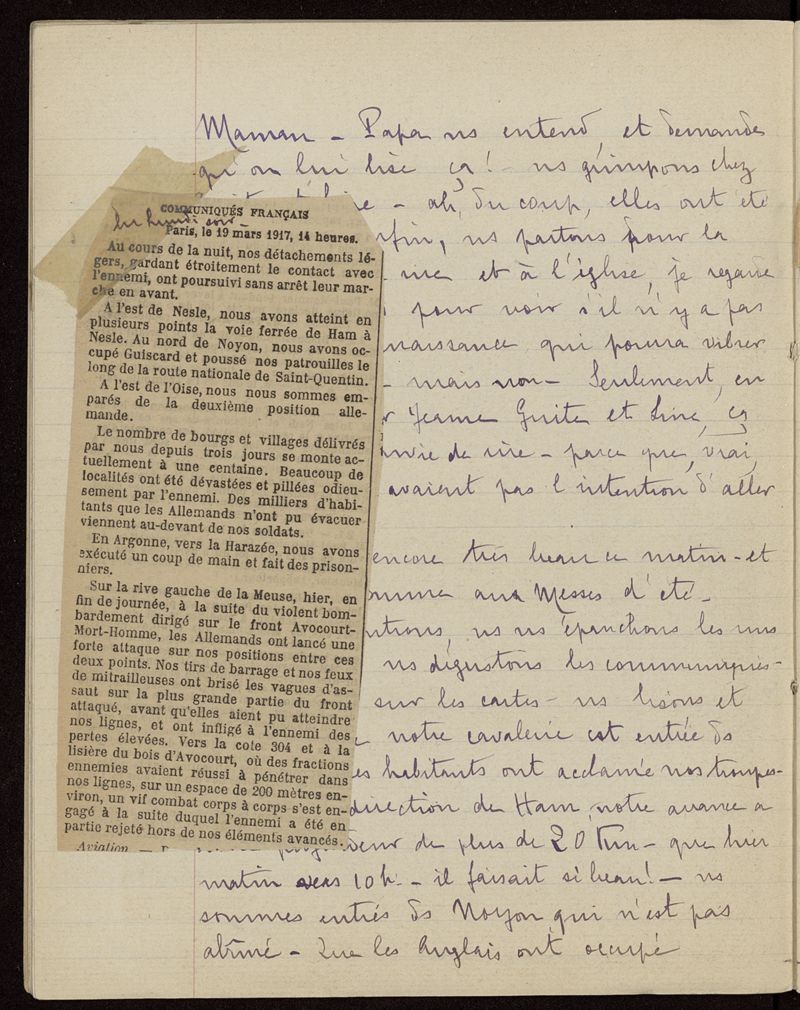 Maman - Papa ns entend, et demande
qu'on lui lise ça! - ns grimpons chez
- ah, du coup, elles ont été
ns partons pour la
et à l'église, je regarde
pour voir s'il n'y a pas
qui pourra vibrer
- mais non - Seulement, en
Jeanne Guite et Line, ça
envie de rire - parce que, vrai,
avaient pas l'intention d'aller
encore très beau ce matin - et
comme aux Messes d'été -
ns ns épanchons les uns
ns dégustons les communiqués -
sur les cartes - ns lisons et
notre cavalerie est entrée ds
es habitants ont acclamé nos troupes -
direction de Ham, notre avance a
de plus de 20 Km - que hier
matin vers 10 h. - il faisait si beau! - ns
sommes entrés ds Noyon qui n'est pas
abîmé - Que les Anglais ont occupé
COMMUNIQUÉS FRANÇAIS
lu lundi soir -
Paris, le 19 mars 1917, 14 heures.
Au cours de la nuit, nos détachements lé-
gers, gardant étroitement le contact avec
l'ennemi, ont poursuivi sans arrêt leur mar-
che en avant.
A l'est de Nesle, nous avons atteint en
plusieurs points la voie ferrée de Ham à
Nesle. Au nord de Noyon, nous avons oc-
cupé Guiscard et poussé nos patrouilles le
long de la route nationale de Saint-Quentin.
A l'est de l'Oise, nous nous sommes em-
parés de la deuxième position alle-
mande.
Le nombre de bourgs et villages délivrés
par nous depuis trois jours se monte ac-
tuellement à une centaine. Beaucoup de
localités ont été dévastées et pillées odieu-
sement par l'ennemi. Des milliers d'habi-
tants que les Allemands n'ont pu évacuer
viennent au-devant de nos soldats.
En Argonne, vers la Harazée, nous avons
exécuté un coup de main et fait des prison-
niers.
Sur la rive gauche de la Meuse, hier, en
fin de journée, à la suite du violent bom-
bardement dirigé sur le front Avocourt-
Mort-Homme, les Allemands ont lancé une
forte attaque sur nos positions entre ces
deux points. Nos tirs de barrage et nos feux
de mitrailleuses ont brisé les vagues d'as-
saut sur la plus grande partie du front
attaqué, avant qu'elles aient pu atteindre
nos lignes, et ont infligé à l'ennemi des
pertes élevées. Vers la cote 304 et à la
lisière du bois d'Avocourt, où des fractions
ennemies avaient réussi à pénétrer dans
nos lignes, sur un espace de 200 mètres en-
viron, un vif combat corps à corps s'est en-
gagé à la suite duquel l'ennemi a été en
partie rejeté hors de nos éléments avancés.
Aviation. —